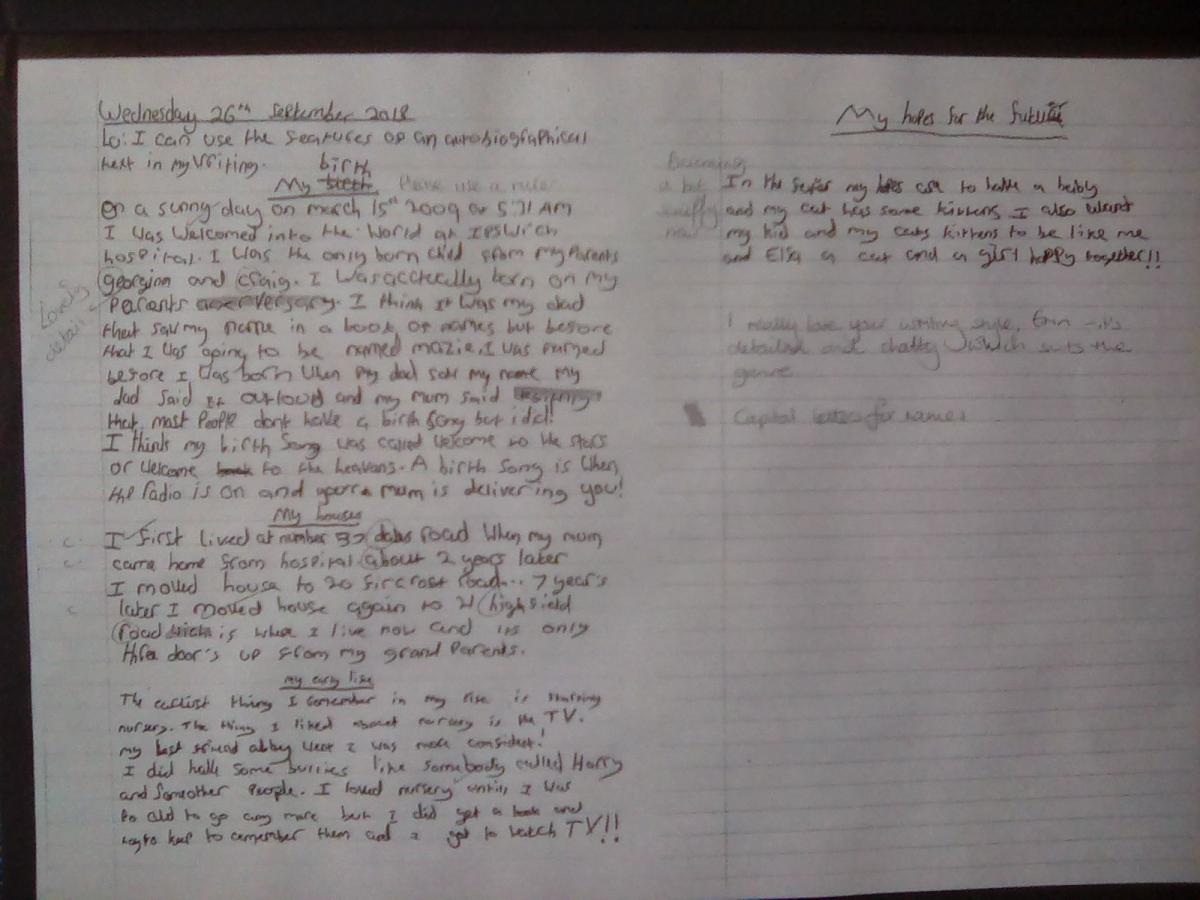 Wednesday 26th September 2018
Lo: I can use the features of an autobiographical
text in my Writing.
birth
My Please use a ruler
On a sunny day on march 15st 2009 at 5:11 AM
I was Welcomed into the World at IPSWich
hospital. I was the only born child from my Parents
georgina and craig. I was acctecally born on my
Parents anerversary. I think It was my dad
that saw my name in a book of names but before
that I was going to be named mazie. I was named
before I was born When my dad saw my name my
dad said it outloud and my mum said
that most People don't have a birth song but i do!
I thinks my birth song was called welcome to the stars
or welcome to the heavens. A birth song is when
the radio is on and your mum is delivering you!
Lovely
details
My houses
I first lived at number 37 dales road When my mum
came home from hospital about 2 years later
I moved house to 20 fircroft road... 7 year's
later I moved house again to 21 highfield
road is where I live now and its only
three door's up from my grand Parents.
c
c
c
my early life
The earliest thing I remember in my life is starting
nursery. The thing I liked about nursery is the TV.
my best friend abby went I was more confident!
I did have some bullies like somebody called Harry
and someother People. I loved nursery until I was
to old to go any more but I did get a book and
to remember them and I got to watch TV!!
My hopes for the future
In the my hopes are to have a baby
and my cat has some kittens I also want
my kid and my cats kittens to be like me
and Elsa a cat and a girl happy together!!
Becoming
a bit
sniffy
now
I really love your writing style, Erin - it's
detailed and chatty which suits the
genre
Capital letters for names